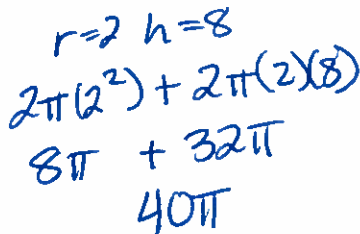 r=2 h=8
2π(2²) + 2π(2)(8)
8π + 32π
40π